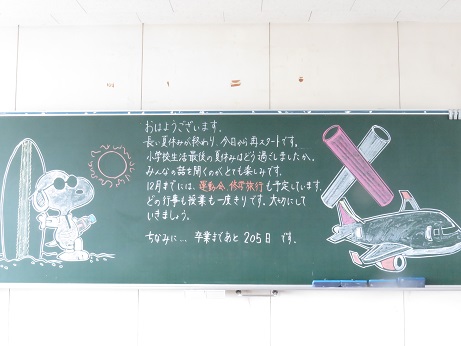 おはようございます。
長い夏休みが終わり、今日から再スタートです。
小学校生活最後の夏休みはどう過ごしましたか。
みんなの話を聞くのがとても楽しみです。
12月までには、運動会、修学旅行も予定しています。
どの行事も授業も一度きりです。大切にして
いきましょう。
ちなみに… 卒業まであと 205日 です。